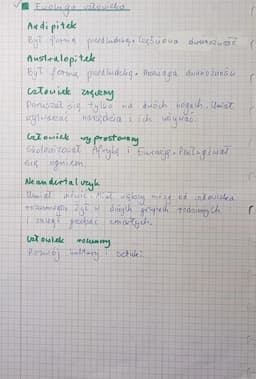 Ewolucja człowieka
Ardipitek
Był formą przedludzką. Częściowa dwunożność
Australopitek
Był formą przedludzką. Postawa dwunożna
Człowiek zręczny
Poruszał się tylko na dwóch nogach. Umiał
wytwarzać narzędzia i ich używać.
Człowiek wyprostowany
Skolonizował Afrykę i Eurazję. Posługiwał
się ogniem.
Neandertalczyk
Umiał mówić. Miał większy mózg od człowieka
rozumnego. Żył w dużych grupach rodzinnych
i zaczął grzebać zmarłych.
Człowiek rozumny
Rozwój kultury i sztuki.